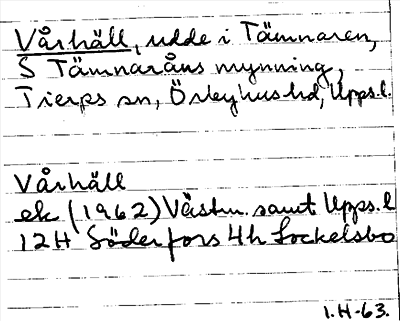 Vårhäll, udde i Tämnaren,
S Tämnaråns mynning,
Tierps sn, Örbyhus hd, Upps.l.
Vårhäll
ek (1962) Västm. samt Upps.l
12H Söderfors 4h Sockelsbo
1.H-63.